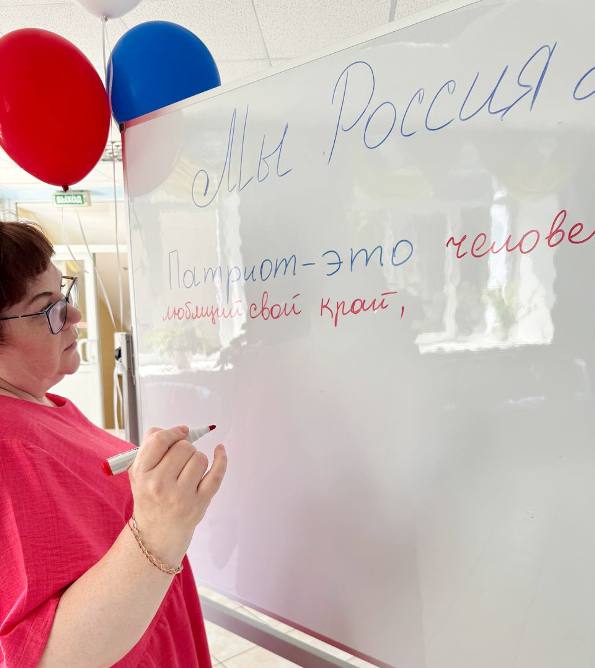 ВЫХОД
Мы Россия
Патриот-это челове
любящий свой край,